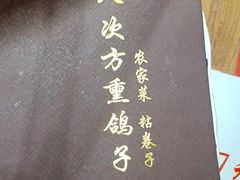 次方熏鸽子
农家菜 粘卷子